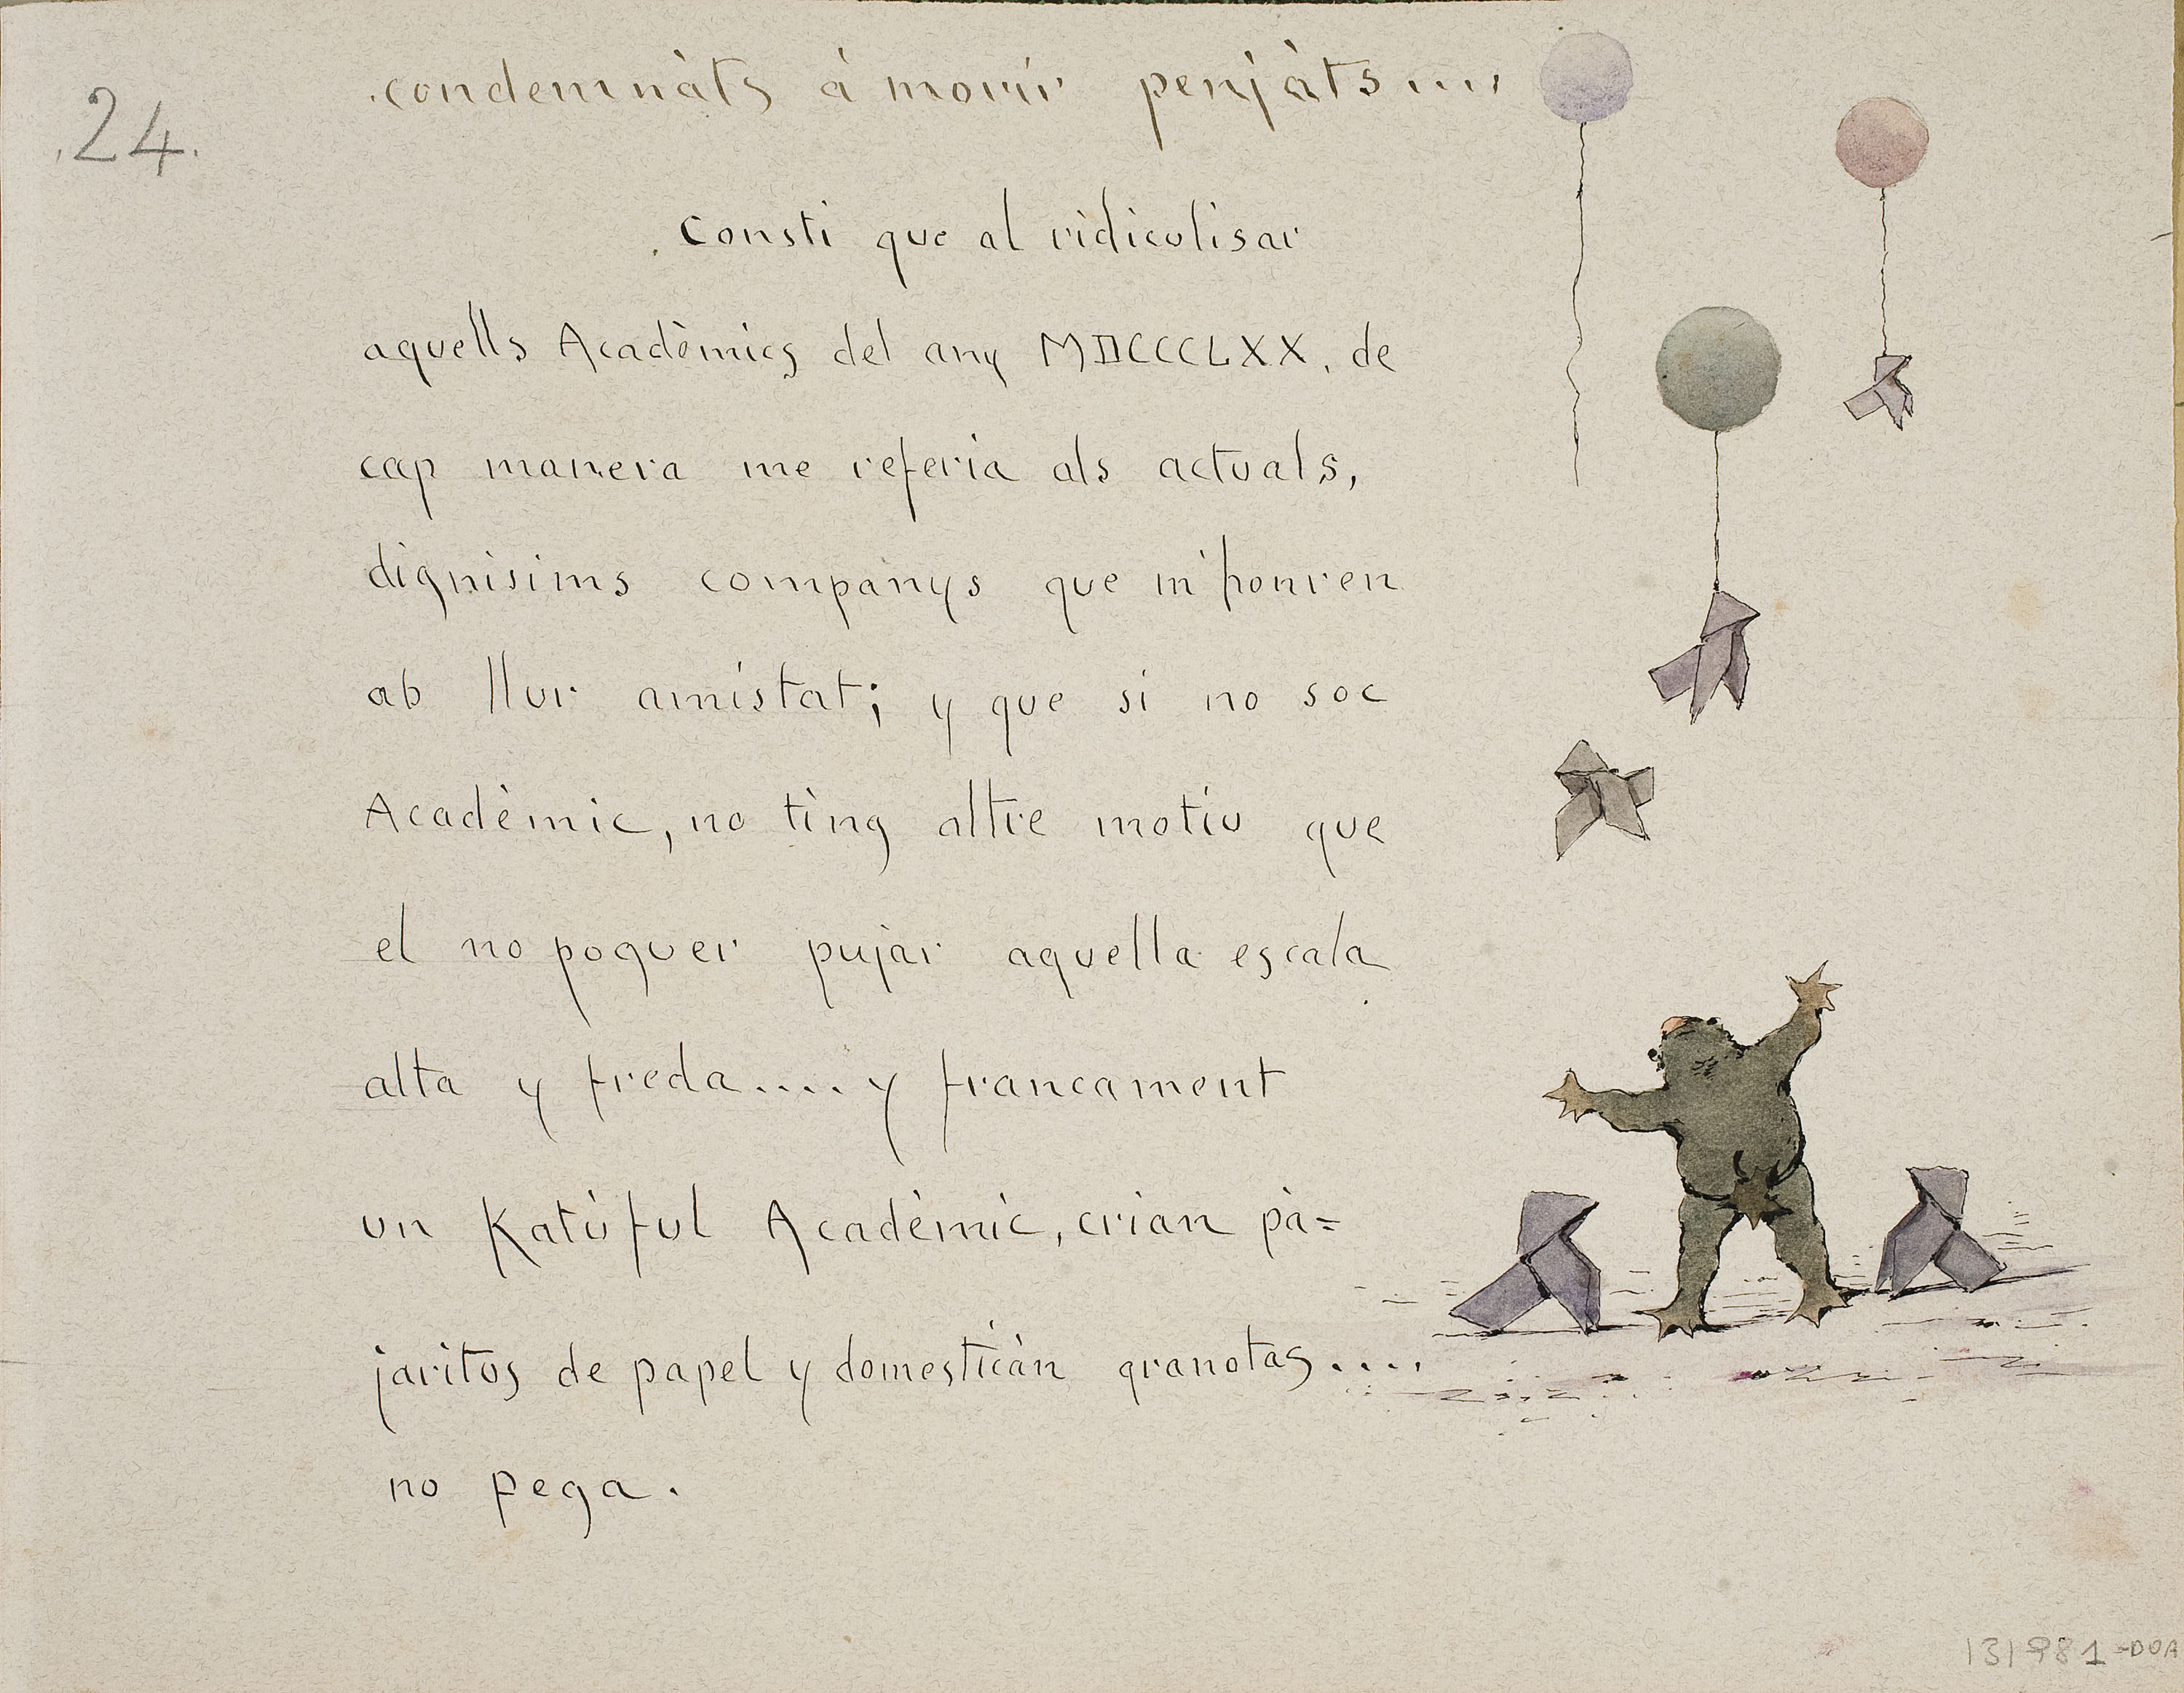 condemnàts á morir penjàts....
.24.
Consti que al ridiculisar
aquells Acadèmics del any MDCCCLXX, de
cap manera me referia als actuals,
dignisims companys que m'honren
ab llur amistat; y que si no soc
Acadèmic, no tìng altre motiu que
el no poguer pujar aquella escala
alta y freda.... y francament
un Katúful Acadèmic, crian pà=
jaritos de papel y domesticàn granotas....
no pega.
131981-DOA